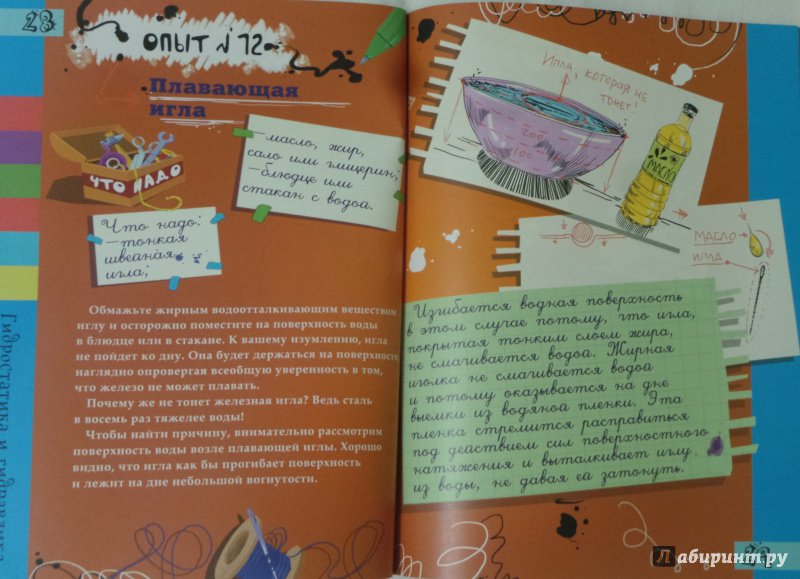 28
ОПЫТ № 12
Плавающая
игла
ЧТО НАДО
—масло, жир,
сало или глицерин;
—блюдце или
стакан с водой.
Что надо:
—тонкая
швейная
игла;
Обмажьте жирным водоотталкивающим веществом
иглу и осторожно поместите на поверхность воды
в блюдце или в стакане. К вашему изумлению, игла
не пойдет ко дну. Она будет держаться на поверхности,
наглядно опровергая всеобщую уверенность в том,
что железо не может плавать.
Почему же не тонет железная игла? Ведь сталь
в восемь раз тяжелее воды!
Чтобы найти причину, внимательно рассмотрим
поверхность воды возле плавающей иглы. Хорошо
видно, что игла как бы прогибает поверхность
и лежит на дне небольшой вогнутости.
Гидростатика и гидравлика
Игла, которая не
тонет!
200
100
МАСЛО
МАСЛО
ИГЛА
Изгибается водная поверхность
в этом случае потому, что игла,
покрытая тонким слоем жира,
не смачивается водой. Жирная
иголка не смачивается водой
и потому оказывается на дне
выемки из водяной пленки. Эта
пленка стремится расправиться
под действием сил поверхностного
натяжения и выталкивает иглу
из воды, не давая ей затонуть.
Лабиринт.ру